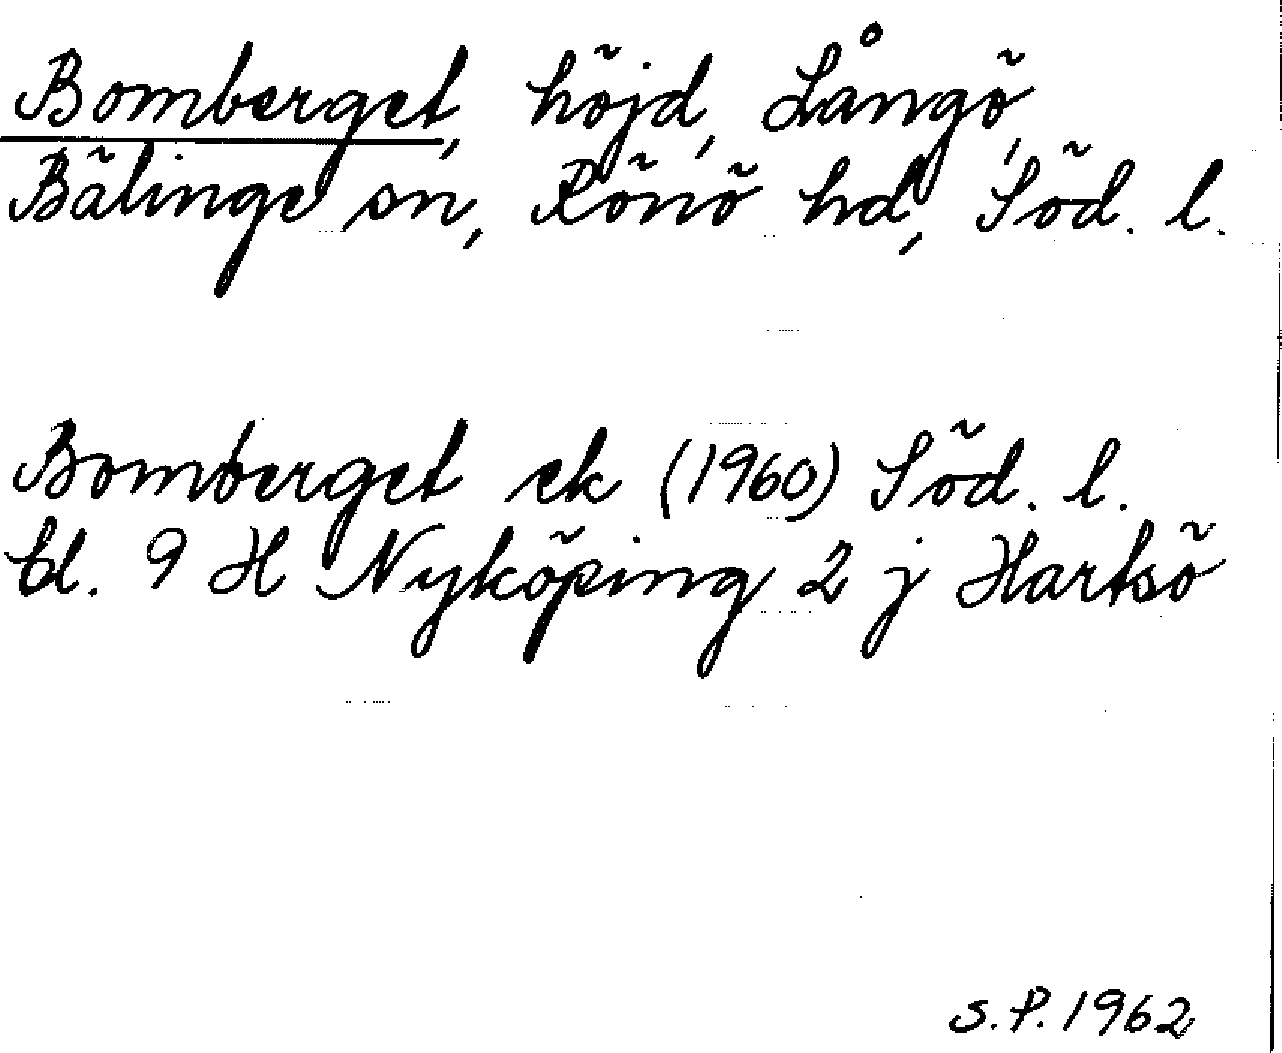 Bomberget, höjd, Långö,
Bälinge sn, Rönö hd, Söd. l.
Bomberget ek (1960) Söd. l.
bl. 9 H Nyköping 2 j Hartsö
S.P. 1962